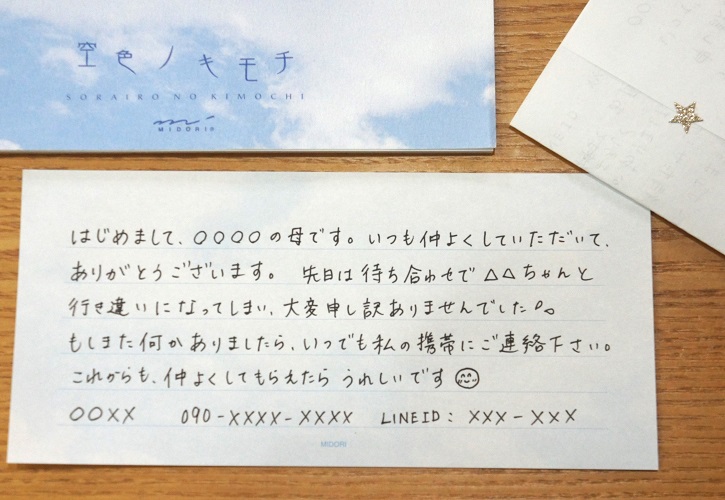 空色ノキモチ
SORAIRO NO KIMOCHI
MIDORI
はじめまして、〇〇〇〇の母です。いつも仲よくしていただいて、
ありがとうございます。 先日は待ち合わせで△△ちゃんと
行き違いになってしまい、大変申し訳ありませんでした。
もしまた何かありましたら、いつでも私の携帯にご連絡下さい。
これからも、仲よくしてもらえたらうれしいです😊
〇〇×× 090-××××-×××× LINEID: ×××-×××
MIDORI